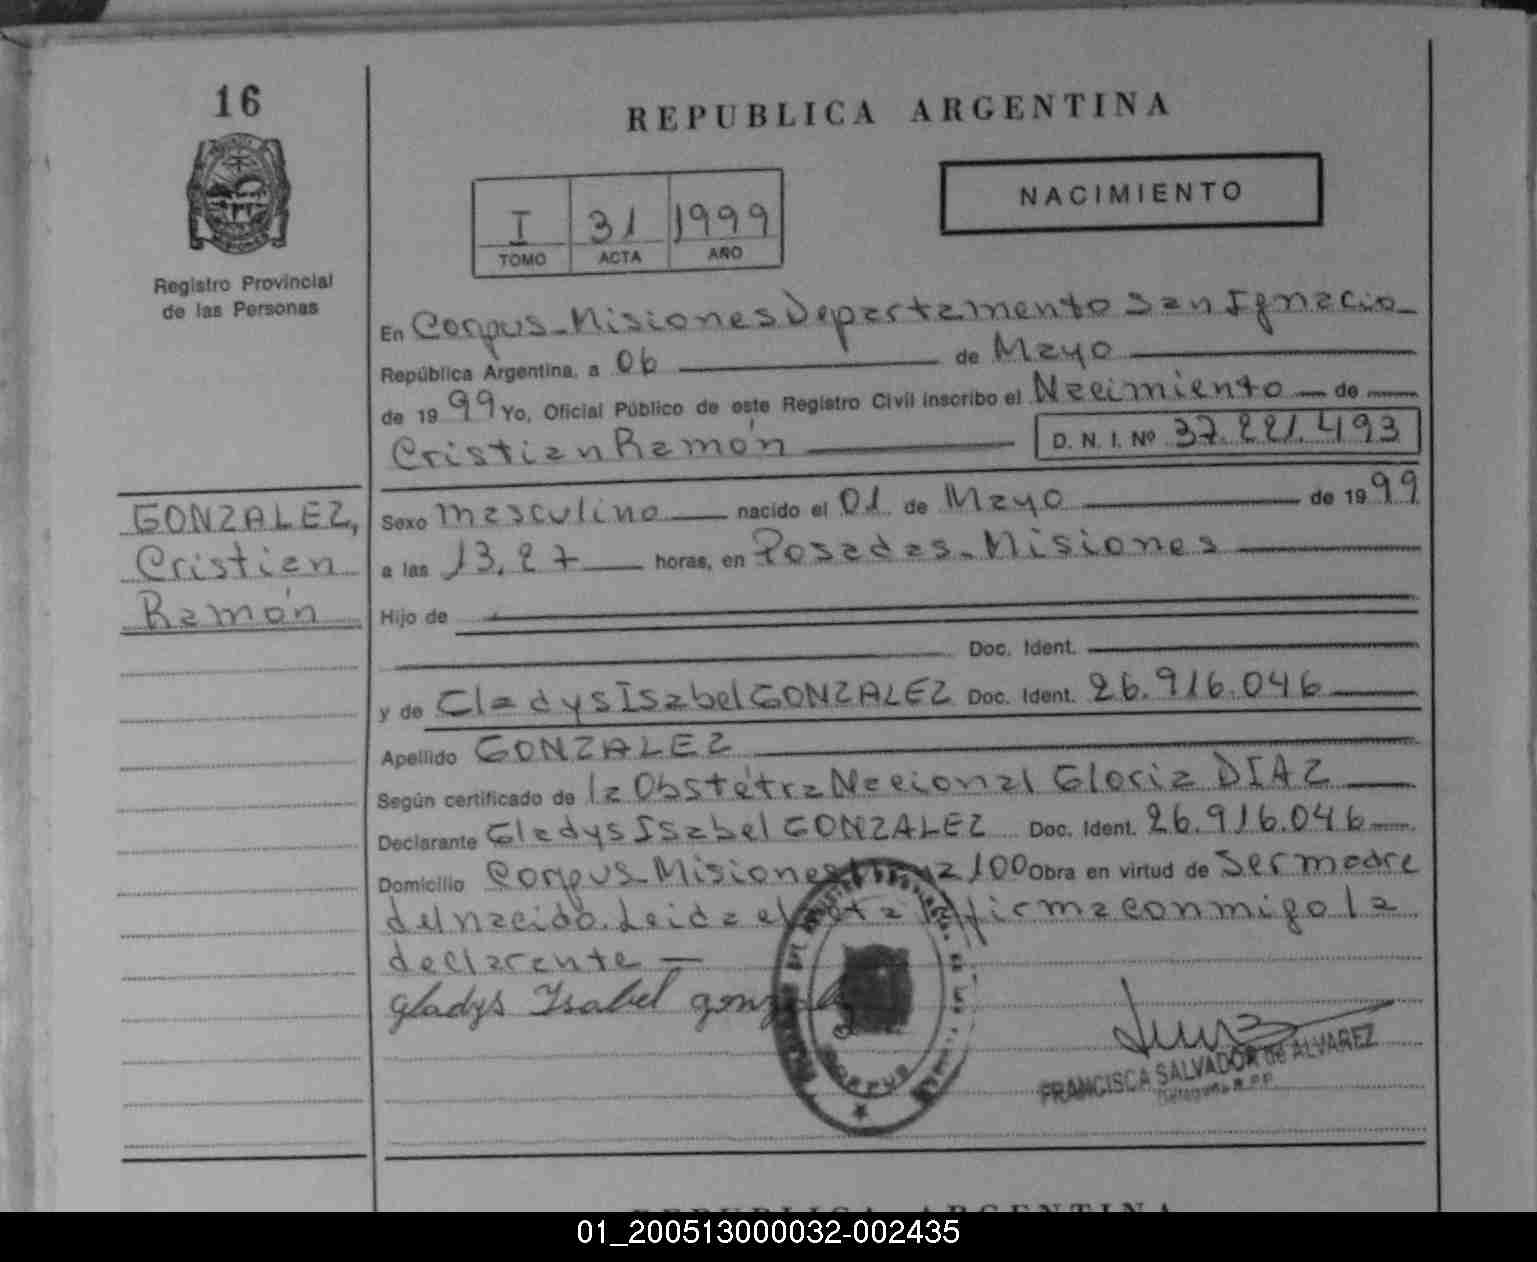 16
REPUBLICA ARGENTINA
NACIMIENTO
I 31 1999
TOMO ACTA AÑO
Registro Provincial
de las Personas
En Corpus-Misiones Departamento San Ignacio
República Argentina, a 06 de Mayo
de 1999 Yo, Oficial Público de este Registro Civil inscribo el Nacimiento de
Cristian Ramón D. N. I. Nº 37.221.493
GONZALEZ,
Cristian
Ramón
Sexo masculino nacido el 01 de Mayo de 1999
a las 13,27 horas, en Posadas-Misiones
Hijo de
Doc. Ident.
y de Gladys Isabel GONZALEZ Doc. Ident. 26.916.046
Apellido GONZALEZ
Según certificado de la Obstétra Nacional Gloria DIAZ
Declarante Gladys Isabel GONZALEZ Doc. Ident. 26.916.046
Domicilio Corpus-Misiones 100 Obra en virtud de Ser madre
del nacido. Leida el acta la firma conmigo la
declarante
gladys Isabel
CORPUS
FRANCISCA SALVADOR de ALVAREZ
REPUBLICA ARGENTINA
01_200513000032-002435